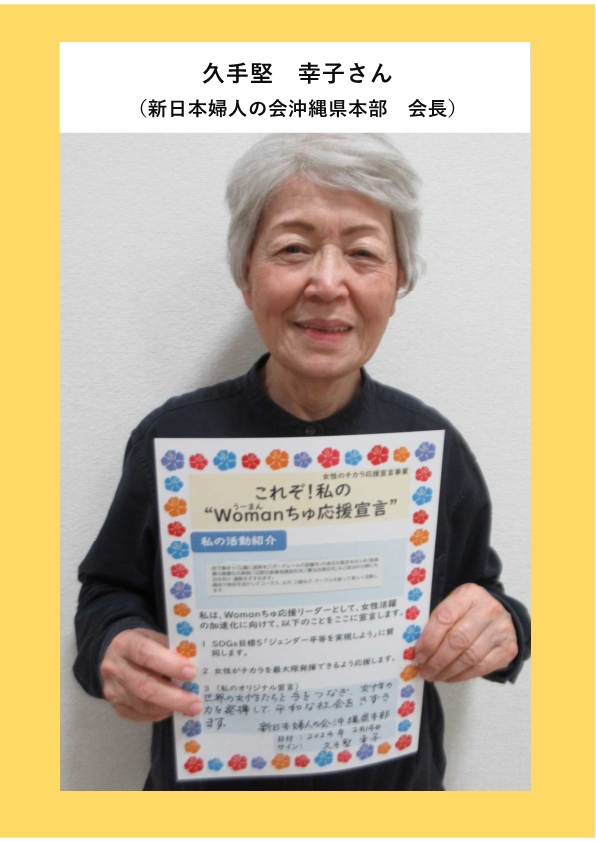 久手堅　幸子さん
（新日本婦人の会沖縄県本部　会長）
女性のチカラ応援宣言事業
これぞ！私の
うーまん
“Womanちゅ応援宣言”
私の活動紹介
私は、Womanちゅ応援リーダーとして、女性活躍
の加速化に向けて、以下のことをここに宣言します。
1 SDGs目標5「ジェンダー平等を実現しよう」に賛
同します。
2 女性がチカラを最大限発揮できるよう応援します。
3 （私のオリジナル宣言）
世界の女性たちと手をつなぎ、女性の
力を発揮して、平和な社会をめざし
ます。
新日本婦人の会沖縄県本部
日付：2024年 2月14日
サイン： 久手堅 幸子